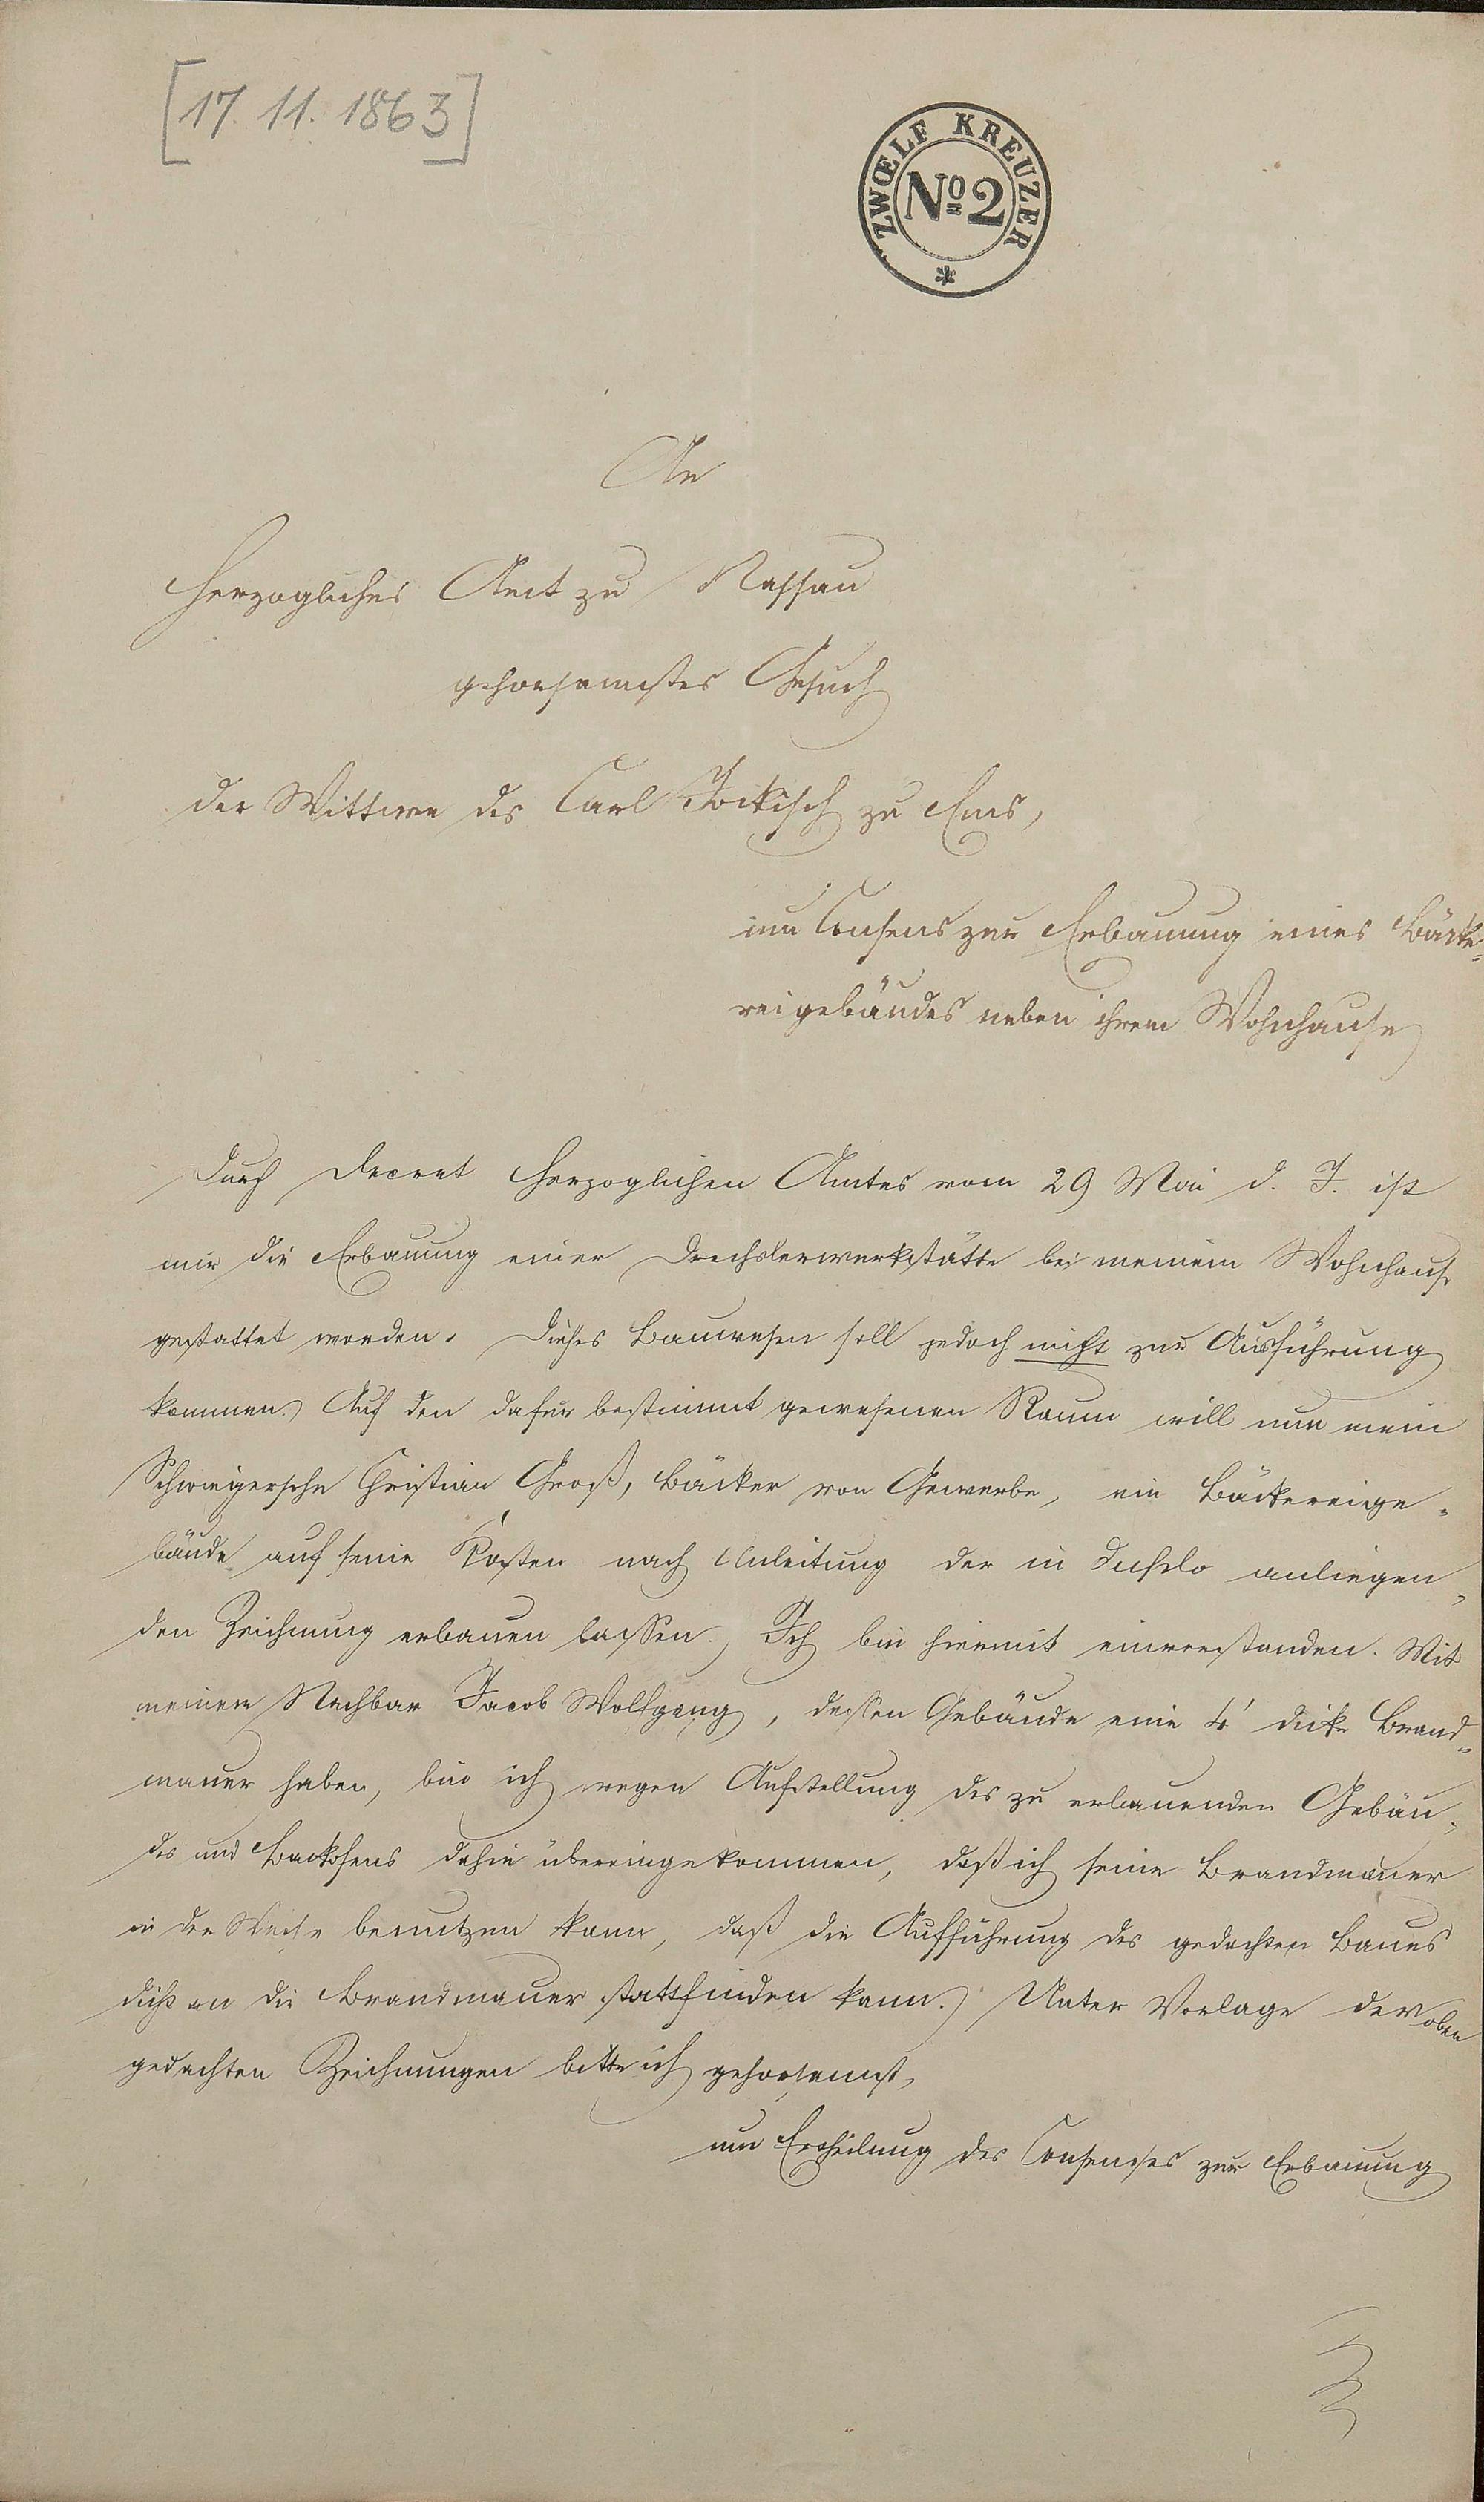 [17. 11. 1863]
ZWŒLF KREUZER
No 2
An
Herzogliches Amt zu Nassau
gehorsamstes Gesuch
der Wittwe des Carl Jockisch zu Ems,
um Consens zur Erbauung eines Bäcke-
reigebäudes neben ihrem Wohnhause
Durch Decret Herzoglichen Amtes vom 29 Mai d. J. ist
mir die Erbauung einer Drechslerwerkstätte bei meinem Wohnhause
gestattet worden. Dieses Bauwesen soll jedoch nicht zur Ausführung
kommen. Auf den dafür bestimmt gewesenen Raum will nun mein
Schwiegersohn Christian Groß, Bäcker von Gewerbe, ein Bäckereige-
bäude auf seine Kosten nach Anleitung der in duplo anliegen-
den Zeichnung erbauen lassen. Ich bin hiermit einverstanden. Mit
meinem Nachbar Jacob Wolfgang, dessen Gebäude eine 4' dicke Brand-
mauer haben, bin ich wegen Aufstellung des zu erbauenden Gebäu-
des und Backofens dahin übereingekommen, daß ich seine Brandmauer
in der Weise benutzen kann, daß die Aufführung des gedachten Baues
dicht an die Brandmauer stattfinden kann. Unter Vorlage der oben
gedachten Zeichnungen bitte ich gehorsamst,
um Ertheilung des Consenses zur Erbauung